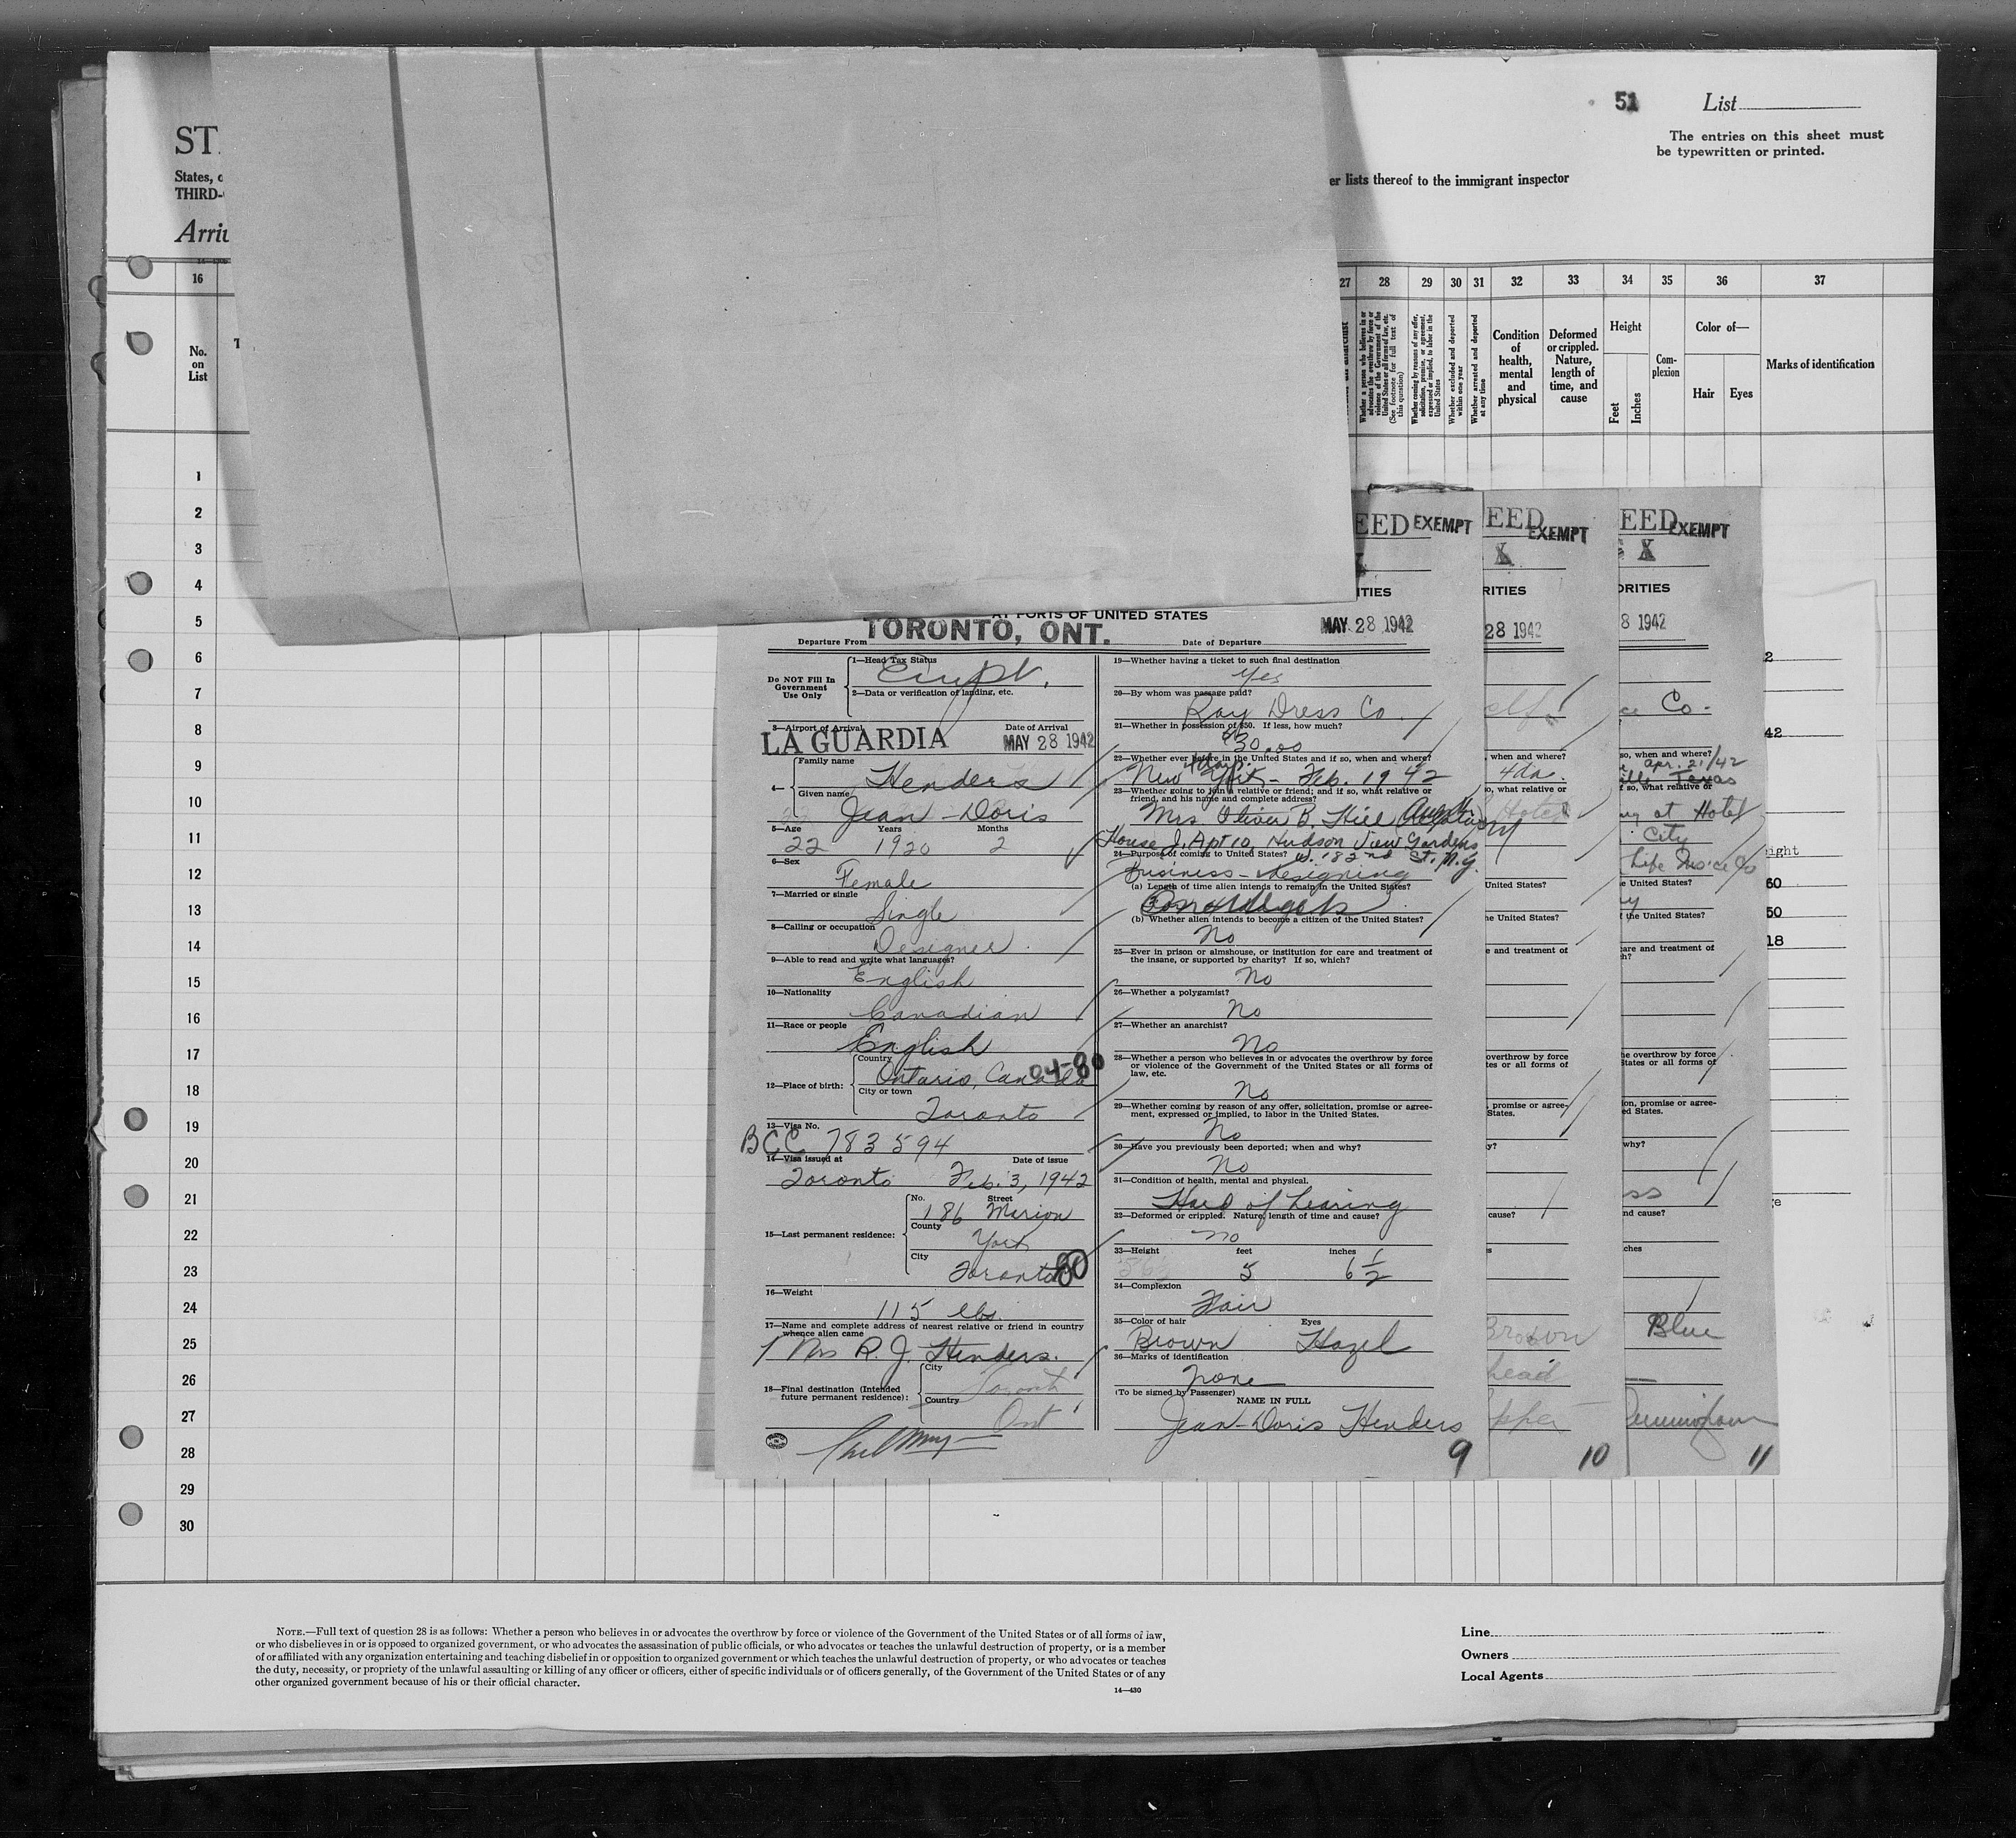 51 List
The entries on this sheet must
be typewritten or printed.
ST
States, o
THIRD-
er lists thereof to the immigrant inspector
Arri
16 27 28 29 30 31 32 33 34 35 36 37
No. on List
Whether a person who believes in or advocates the overthrow by force or violence of the Government of the United States or all forms of law, etc. (See footnote for full text of this question)
Whether coming by reasons of any offer, solicitation, promise, or agreement, expressed or implied, to labor in the United States
Whether excluded and deported within one year
Whether arrested and deported at any time
Condition of health, mental and physical
Deformed or crippled. Nature, length of time, and cause
Height
Feet
Inches
Com-plexion
Color of—
Hair
Eyes
Marks of identification
1
2
3
4
5
6
7
8
9
10
11
12
13
14
15
16
17
18
19
20
21
22
23
24
25
26
27
28
29
30
EED EXEMPT
ITIES
AT PORTS OF UNITED STATES
Departure From TORONTO, ONT. Date of Departure MAY 28 1942
Do NOT Fill In Government Use Only
1—Head Tax Status
2—Data or verification of landing, etc.
3—Airport of Arrival Date of Arrival
LA GUARDIA MAY 28 1942
4— Family name Henders
Given name Jean-Doris
5—Age Years Months
22 1920 2
6—Sex
Female
7—Married or single
Single
8—Calling or occupation
Designer
9—Able to read and write what languages?
English
10—Nationality
Canadian
11—Race or people
English
12—Place of birth: Country
Ontario, Canada 04-80
City or town
Toronto
13—Visa No.
BCC 783594
14—Visa issued at Date of issue
Toronto Feb. 3, 1942
15—Last permanent residence: No. Street
186 Marion
County
York
City
Toronto 80
16—Weight
115 lbs.
17—Name and complete address of nearest relative or friend in country whence alien came
Mrs R. J. Henders.
18—Final destination (Intended future permanent residence): City
Toronto
Country
Ont
19—Whether having a ticket to such final destination
Yes
20—By whom was passage paid?
Ray Dress Co.
21—Whether in possession of $50. If less, how much?
$30.00
22—Whether ever before in the United States and if so, when and where?
4 days.
New York, - Feb. 1942
23—Whether going to join a relative or friend; and if so, what relative or friend, and his name and complete address?
Mrs. Oliver B Hill
House J. Apt 10, Hudson View Gardens
24—Purpose of coming to United States? W. 182nd St. N.Y.
Business - designing
(a) Length of time alien intends to remain in the United States?
(b) Whether alien intends to become a citizen of the United States?
No
25—Ever in prison or almshouse, or institution for care and treatment of the insane, or supported by charity? If so, which?
No
26—Whether a polygamist?
No
27—Whether an anarchist?
No
28—Whether a person who believes in or advocates the overthrow by force or violence of the Government of the United States or all forms of law, etc.
No
29—Whether coming by reason of any offer, solicitation, promise or agreement, expressed or implied, to labor in the United States.
No
30—Have you previously been deported; when and why?
No
31—Condition of health, mental and physical.
Hard of hearing
32—Deformed or crippled. Nature, length of time and cause?
no
33—Height feet inches
5 6 1/2
34—Complexion
Fair
35—Color of hair Eyes
Brown Hazel
36—Marks of identification
None
(To be signed by Passenger)
NAME IN FULL
Jean-Doris Henders
9
EED EXEMPT
X
RITIES
28 1942
elf
, when and where?
4 da.
o, what relative or
Hotel
United States?
he United States?
e and treatment of
overthrow by force
tes or all forms of
, promise or agree-
States.
y?
cause?
s
Brown
head
10
EED EXEMPT
X
ORITIES
8 1942
ce Co.
so, when and where?
apr. 21/42
Texas
f so, what relative or
at Hotel
City
Life Ins'ce Co
e United States?
f the United States?
are and treatment of
h?
he overthrow by force
States or all forms of
on, promise or agree-
ed States.
why?
ss
nd cause?
ches
Blue
11
2
42
ight
60
50
18
ge
NOTE.—Full text of question 28 is as follows: Whether a person who believes in or advocates the overthrow by force or violence of the Government of the United States or of all forms of law,
or who disbelieves in or is opposed to organized government, or who advocates the assassination of public officials, or who advocates or teaches the unlawful destruction of property, or is a member
of or affiliated with any organization entertaining and teaching disbelief in or opposition to organized government or which teaches the unlawful destruction of property, or who advocates or teaches
the duty, necessity, or propriety of the unlawful assaulting or killing of any officer or officers, either of specific individuals or of officers generally, of the Government of the United States or of any
other organized government because of his or their official character.
14—430
Line
Owners
Local Agents